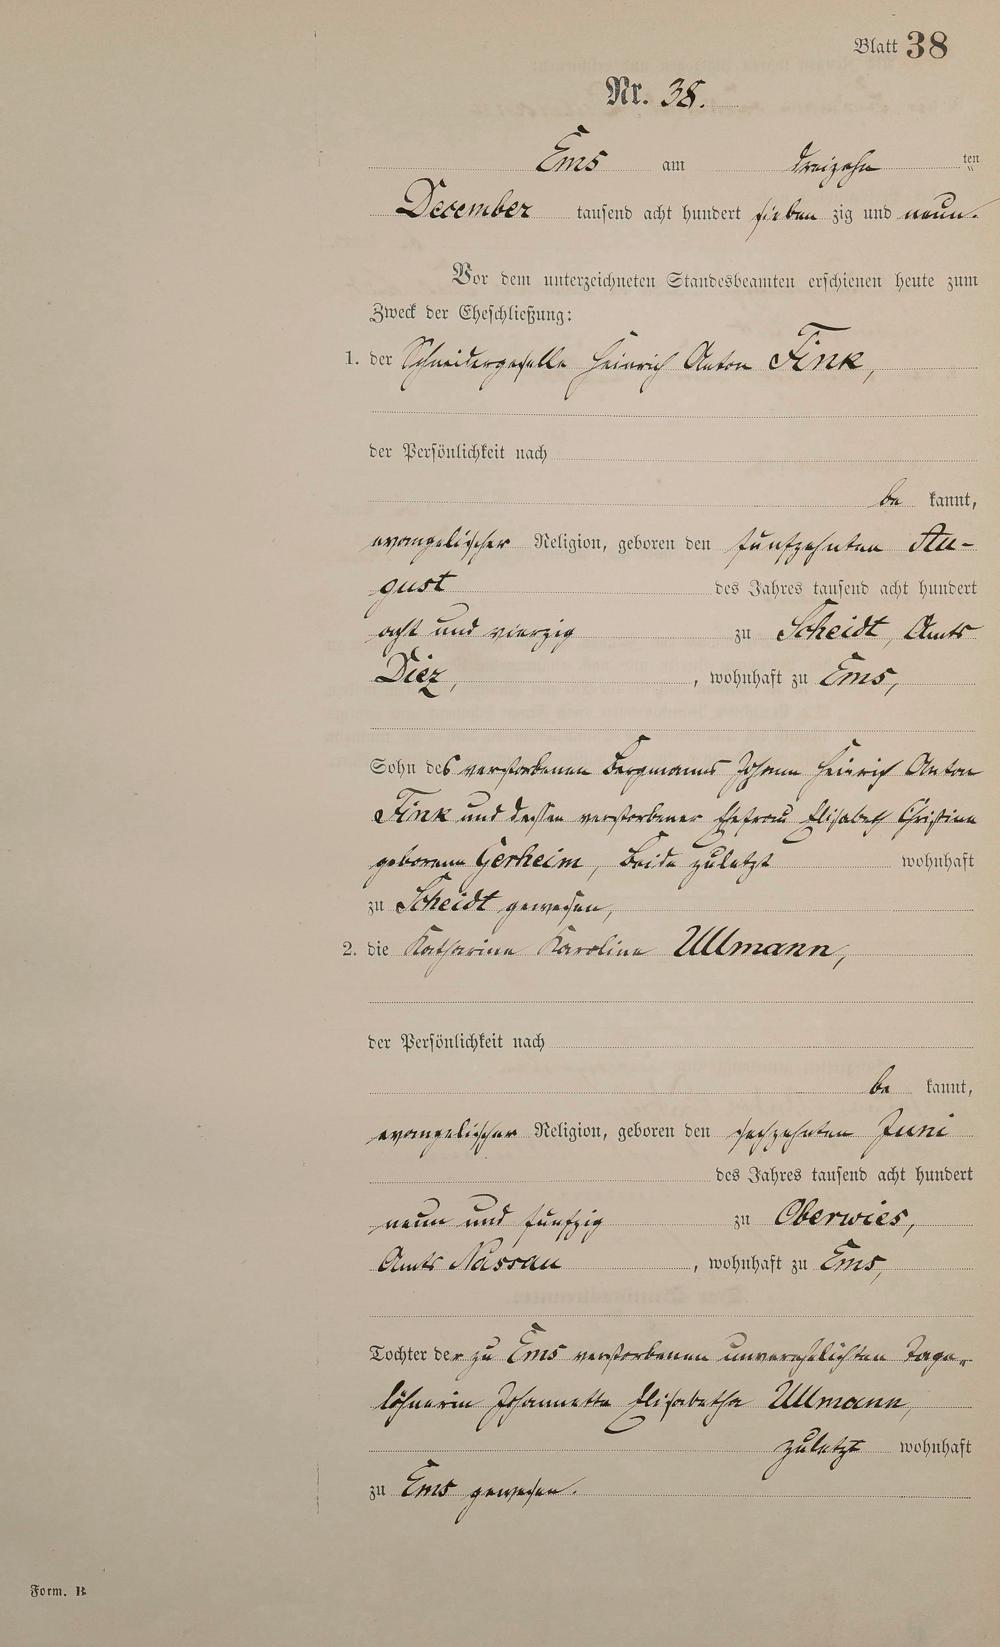 Blatt 38
Nr. 38.
Ems am dreizehn ten
December tausend acht hundert sieben zig und neun.
Vor dem unterzeichneten Standesbeamten erschienen heute zum
Zweck der Eheschließung:
1. der Schneidergeselle Heinrich Anton Fink,
der Persönlichkeit nach
be kannt,
evangelischer Religion, geboren den fünfzehnten Au-
gust des Jahres tausend acht hundert
acht und vierzig zu Scheidt, Amts
Diez, , wohnhaft zu Ems,
Sohn des verstorbenen Bergmanns Johann Heinrich Anton
Fink und dessen verstorbener Ehefrau Elisabeth Christine
geborene Gerheim, beide zuletzt wohnhaft
zu Scheidt gewesen,
2. die Katharine Karoline Ullmann,
der Persönlichkeit nach
be kannt,
evangelischer Religion, geboren den sechzehnten Juni
des Jahres tausend acht hundert
neun und fünfzig zu Oberwies,
Amts Nassau , wohnhaft zu Ems,
Tochter der zu Ems verstorbenen unverehelichten Tage-
löhnerin Johannette Elisabetha Ullmann,
zuletzt wohnhaft
zu Ems gewesen.
Form. B